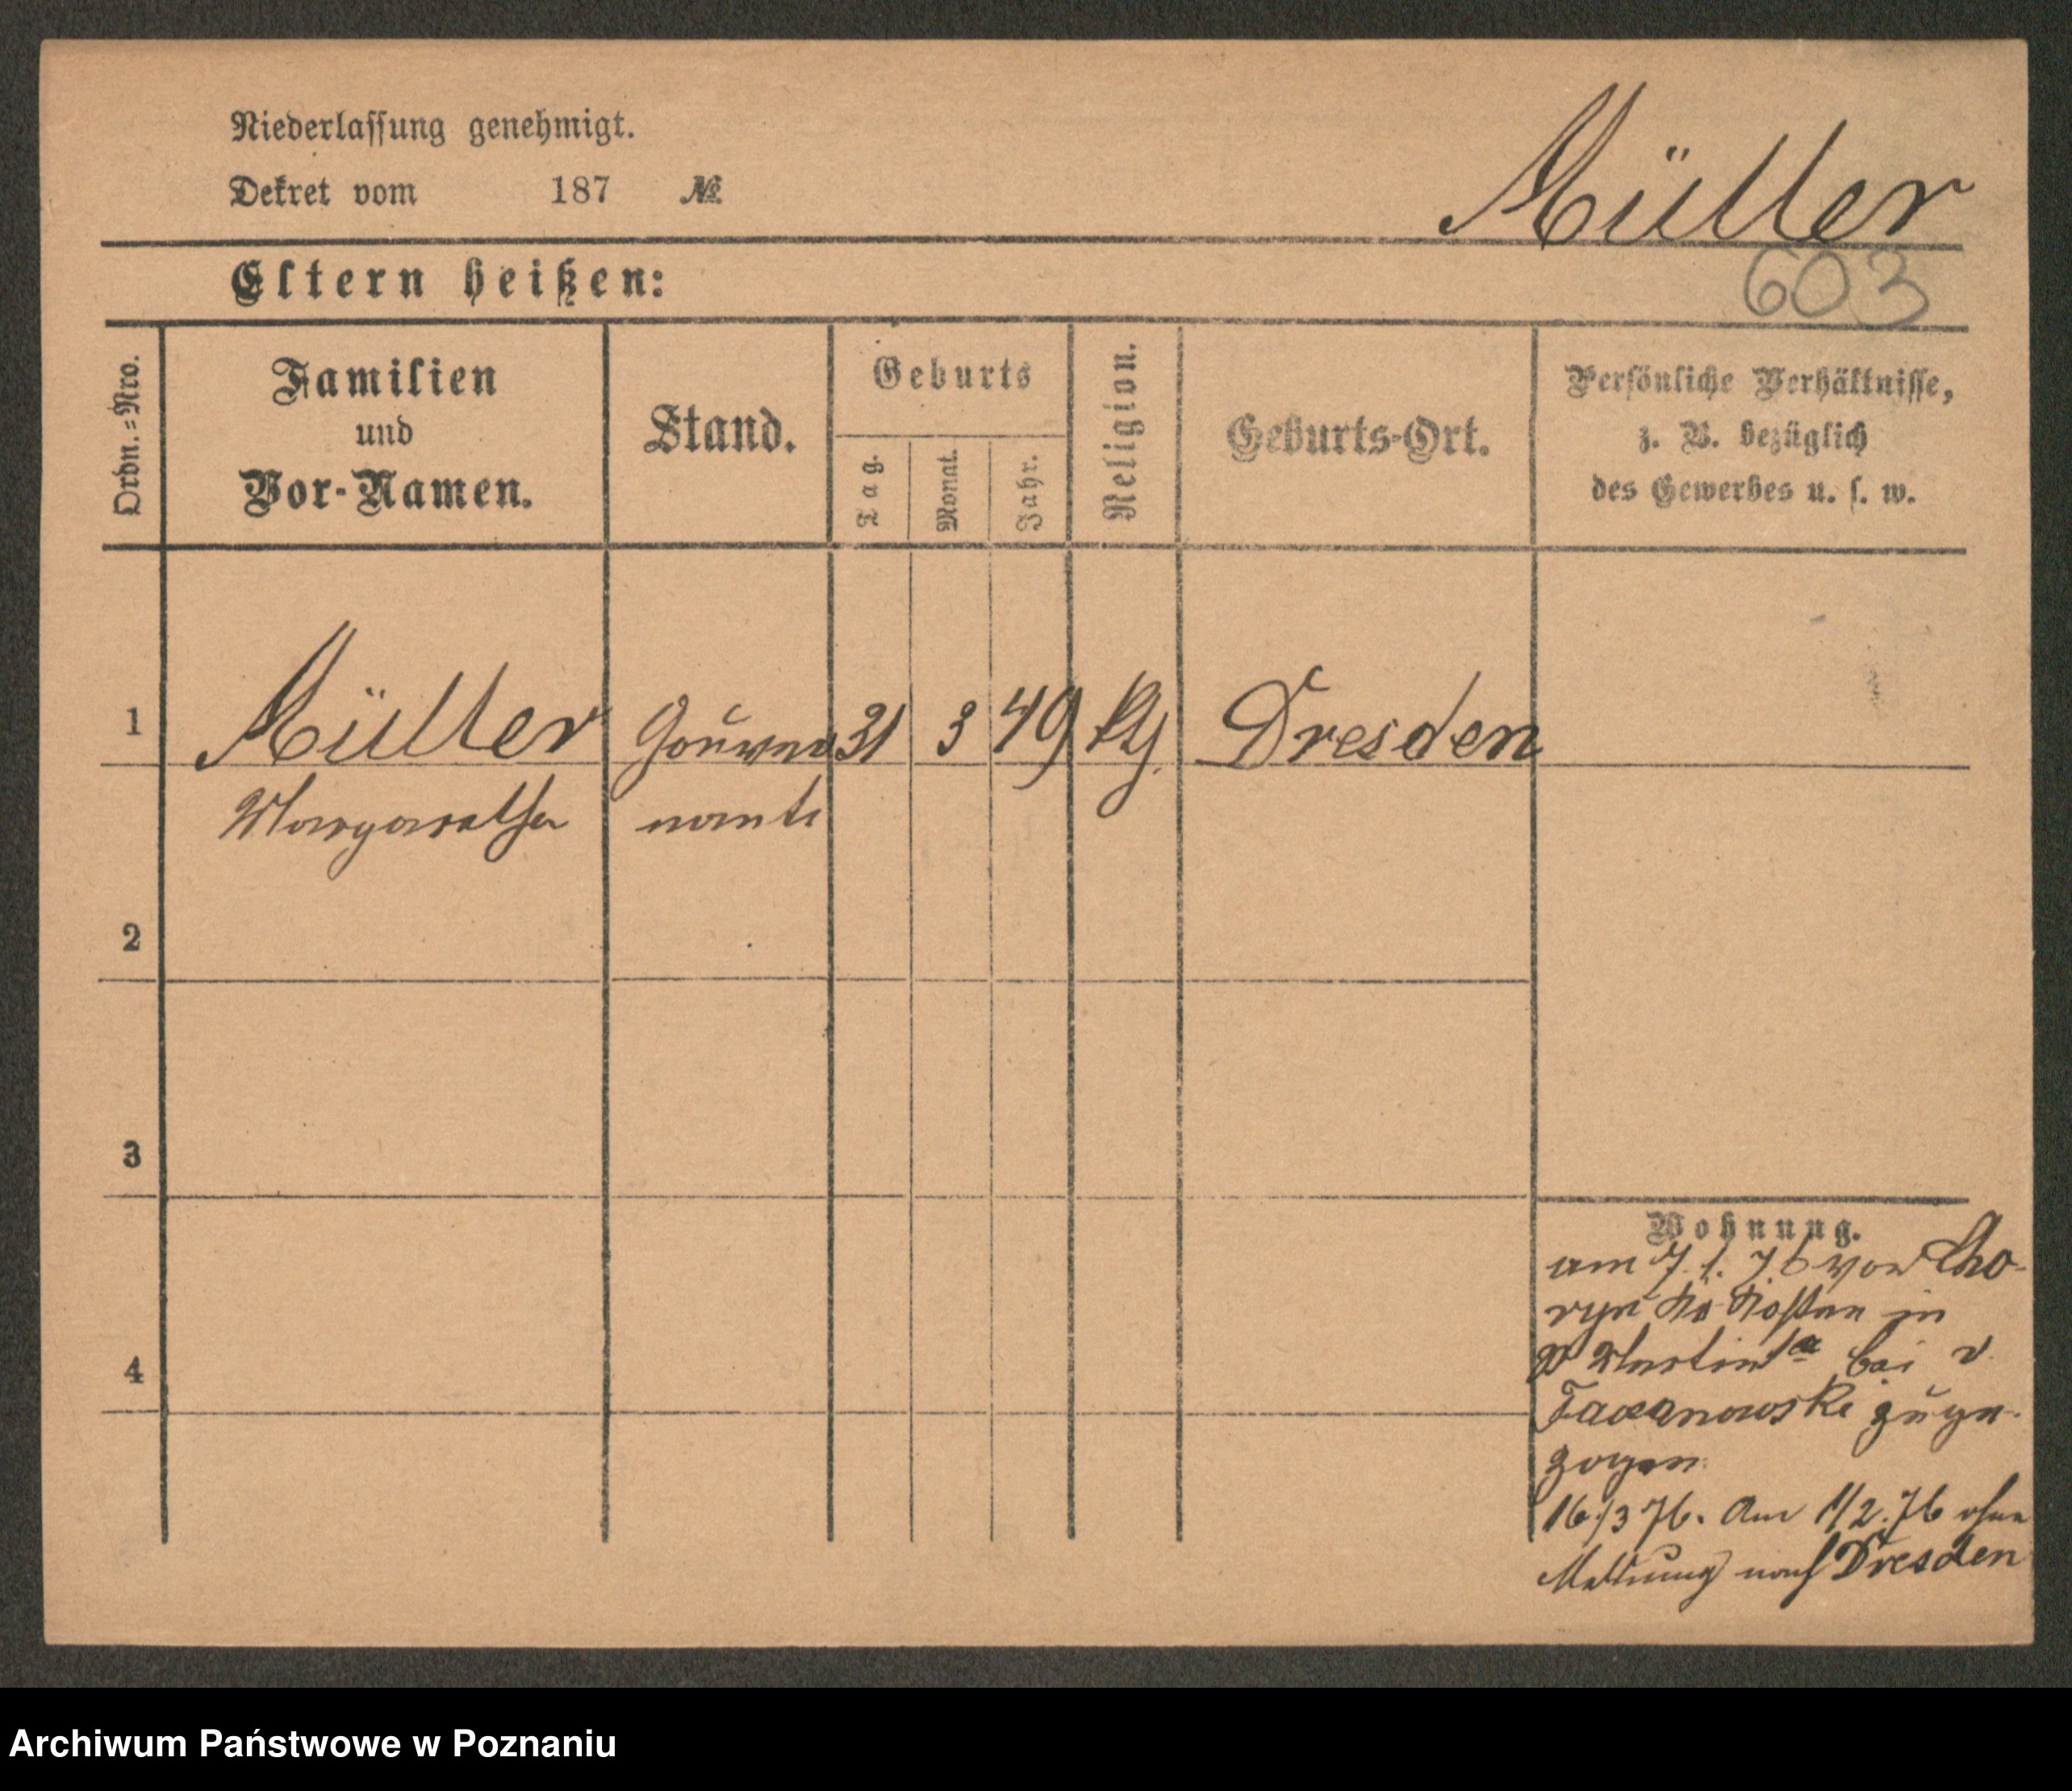 Niederlassung genehmigt.
Müller
Dekret vom 187 №
603
Eltern heißen:
Ordn.=Nro.
Familien
und
Vor-Namen.
Stand.
Geburts
Tag.
Monat.
Jahr.
Religion.
Geburts-Ort.
Persönliche Verhältnisse,
z. B. bezüglich
des Gewerbes u. s. w.
1 Müller Gouver 31 3 49 Dresden
Margarethe nante
2
3
4
Wohnung.
am 7. 1. 76 von Cho-
ryn Kr Kosten in
Martin bei v.
Taczanowski zuge-
zogen.
16./3 76. Am 1/2. 76 ohne
Meldung nach Dresden
Archiwum Państwowe w Poznaniu